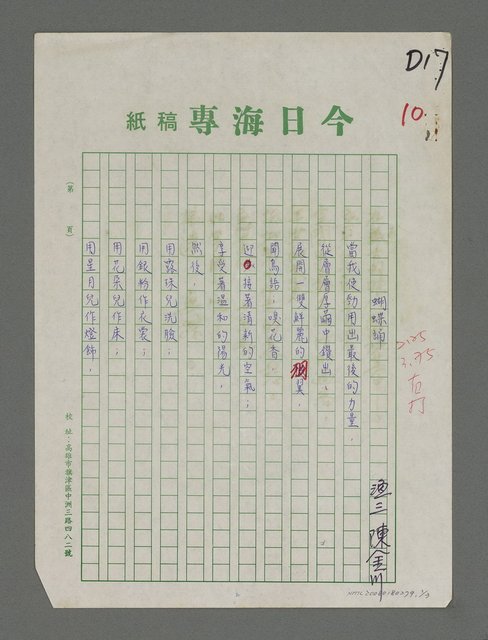 D17
10
今日海專稿紙
(第 頁)
蝴蝶頌
當我使勁用出最後的力量，
從層層厚繭中鑽出，
展開一雙鮮麗的翅翼，
聞鳥語，嗅花香，
迎接著清新的空氣；
享受著溫和的陽光，
然後，
用露珠兒洗臉；
用銀粉作衣裳；
用花朵兒作床；
用星月兒作燈飾，
漁三 陳金川
校址：高雄市旗津區中洲三路四八二號
NMTL20080180279. 1/3